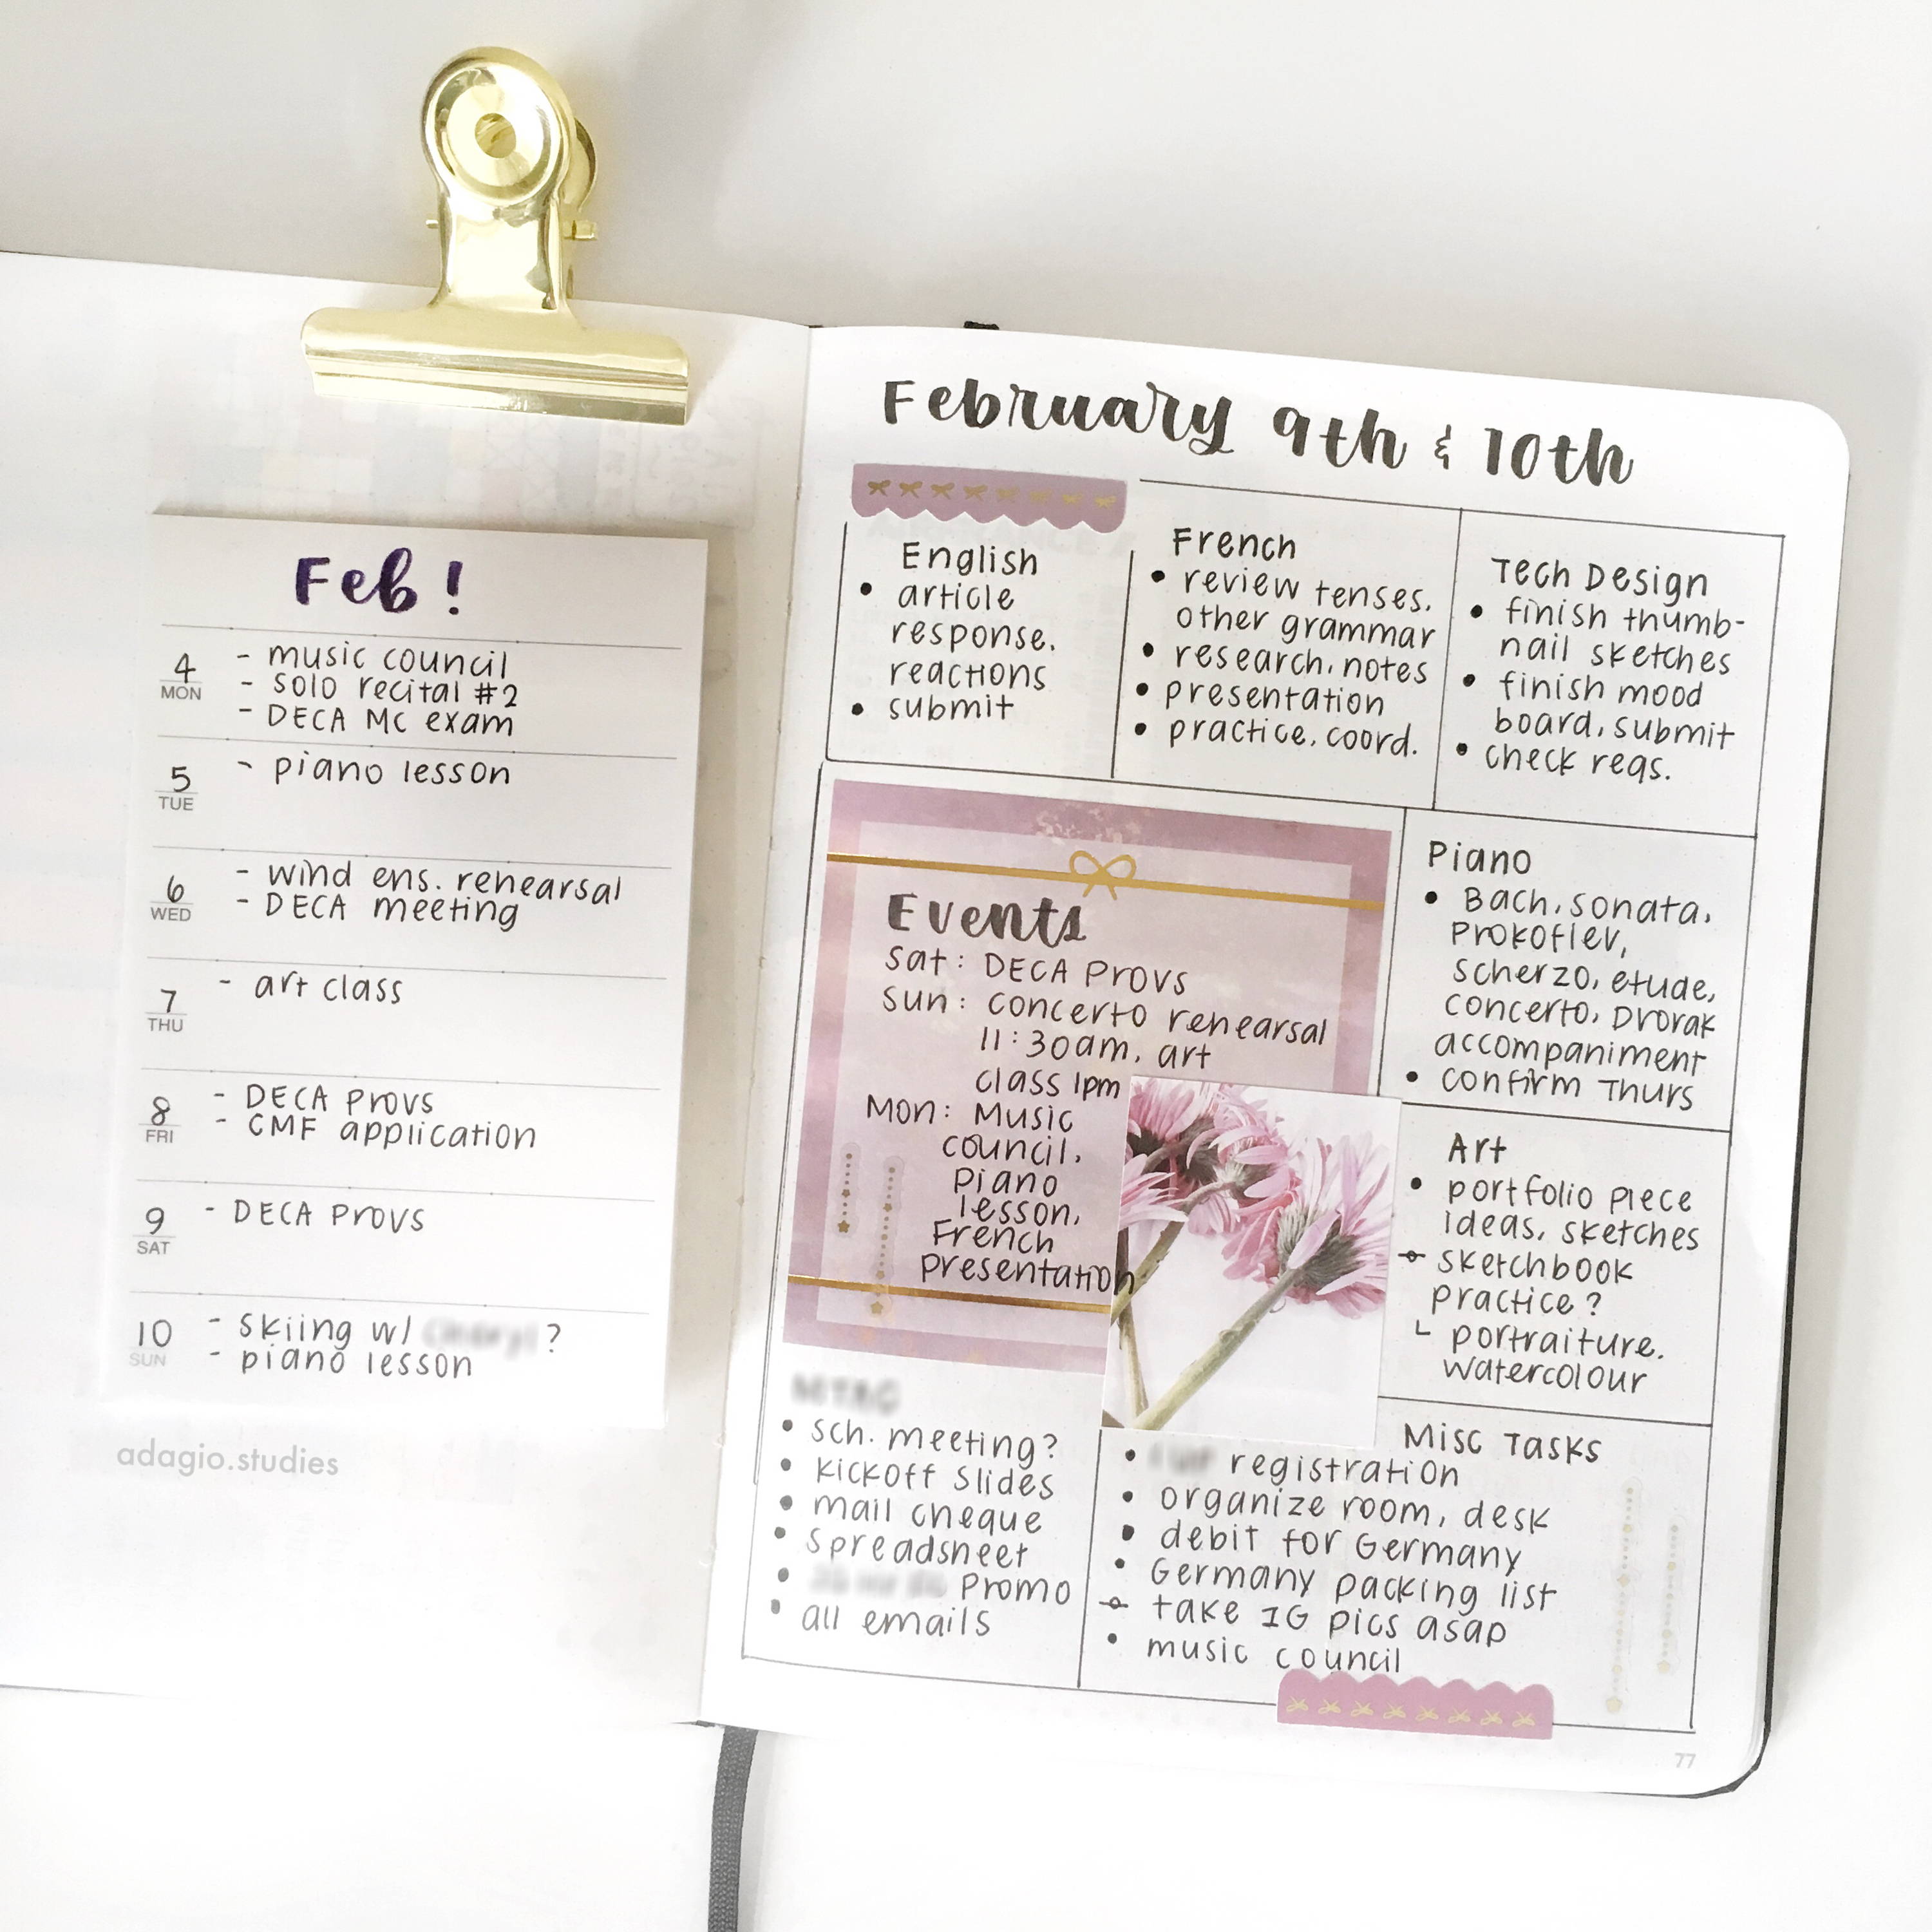 Feb!
4
MON
- music council
- solo recital #2
- DECA MC exam
5
TUE
- piano lesson
6
WED
- wind ens. rehearsal
- DECA meeting
7
THU
- art class
8
FRI
- DECA Provs
- CMF application
9
SAT
- DECA Provs
10
SUN
- skiing w/ ?
- piano lesson
adagio.studies
February 9th & 10th
English
• article
response,
reactions
• submit
French
• review tenses,
other grammar
• research, notes
• presentation
• practice, coord.
Tech Design
• finish thumb-
nail sketches
• finish mood
board, submit
• check reqs.
Events
Sat: DECA Provs
Sun: concerto rehearsal
11:30am, art
class 1pm
Mon: Music
council,
Piano
lesson,
French
presentation
Piano
• Bach, sonata,
Prokofiev,
scherzo, etude,
concerto, Dvorak
accompaniment
• confirm Thurs
Art
• portfolio piece
ideas, sketches
• sketchbook
practice?
└ portraiture,
watercolour
• sch. meeting?
• kickoff slides
• mail cheque
• spreadsheet
• Promo
• all emails
Misc Tasks
• registration
• organize room, desk
• debit for Germany
• Germany packing list
• take IG pics asap
• music council
77